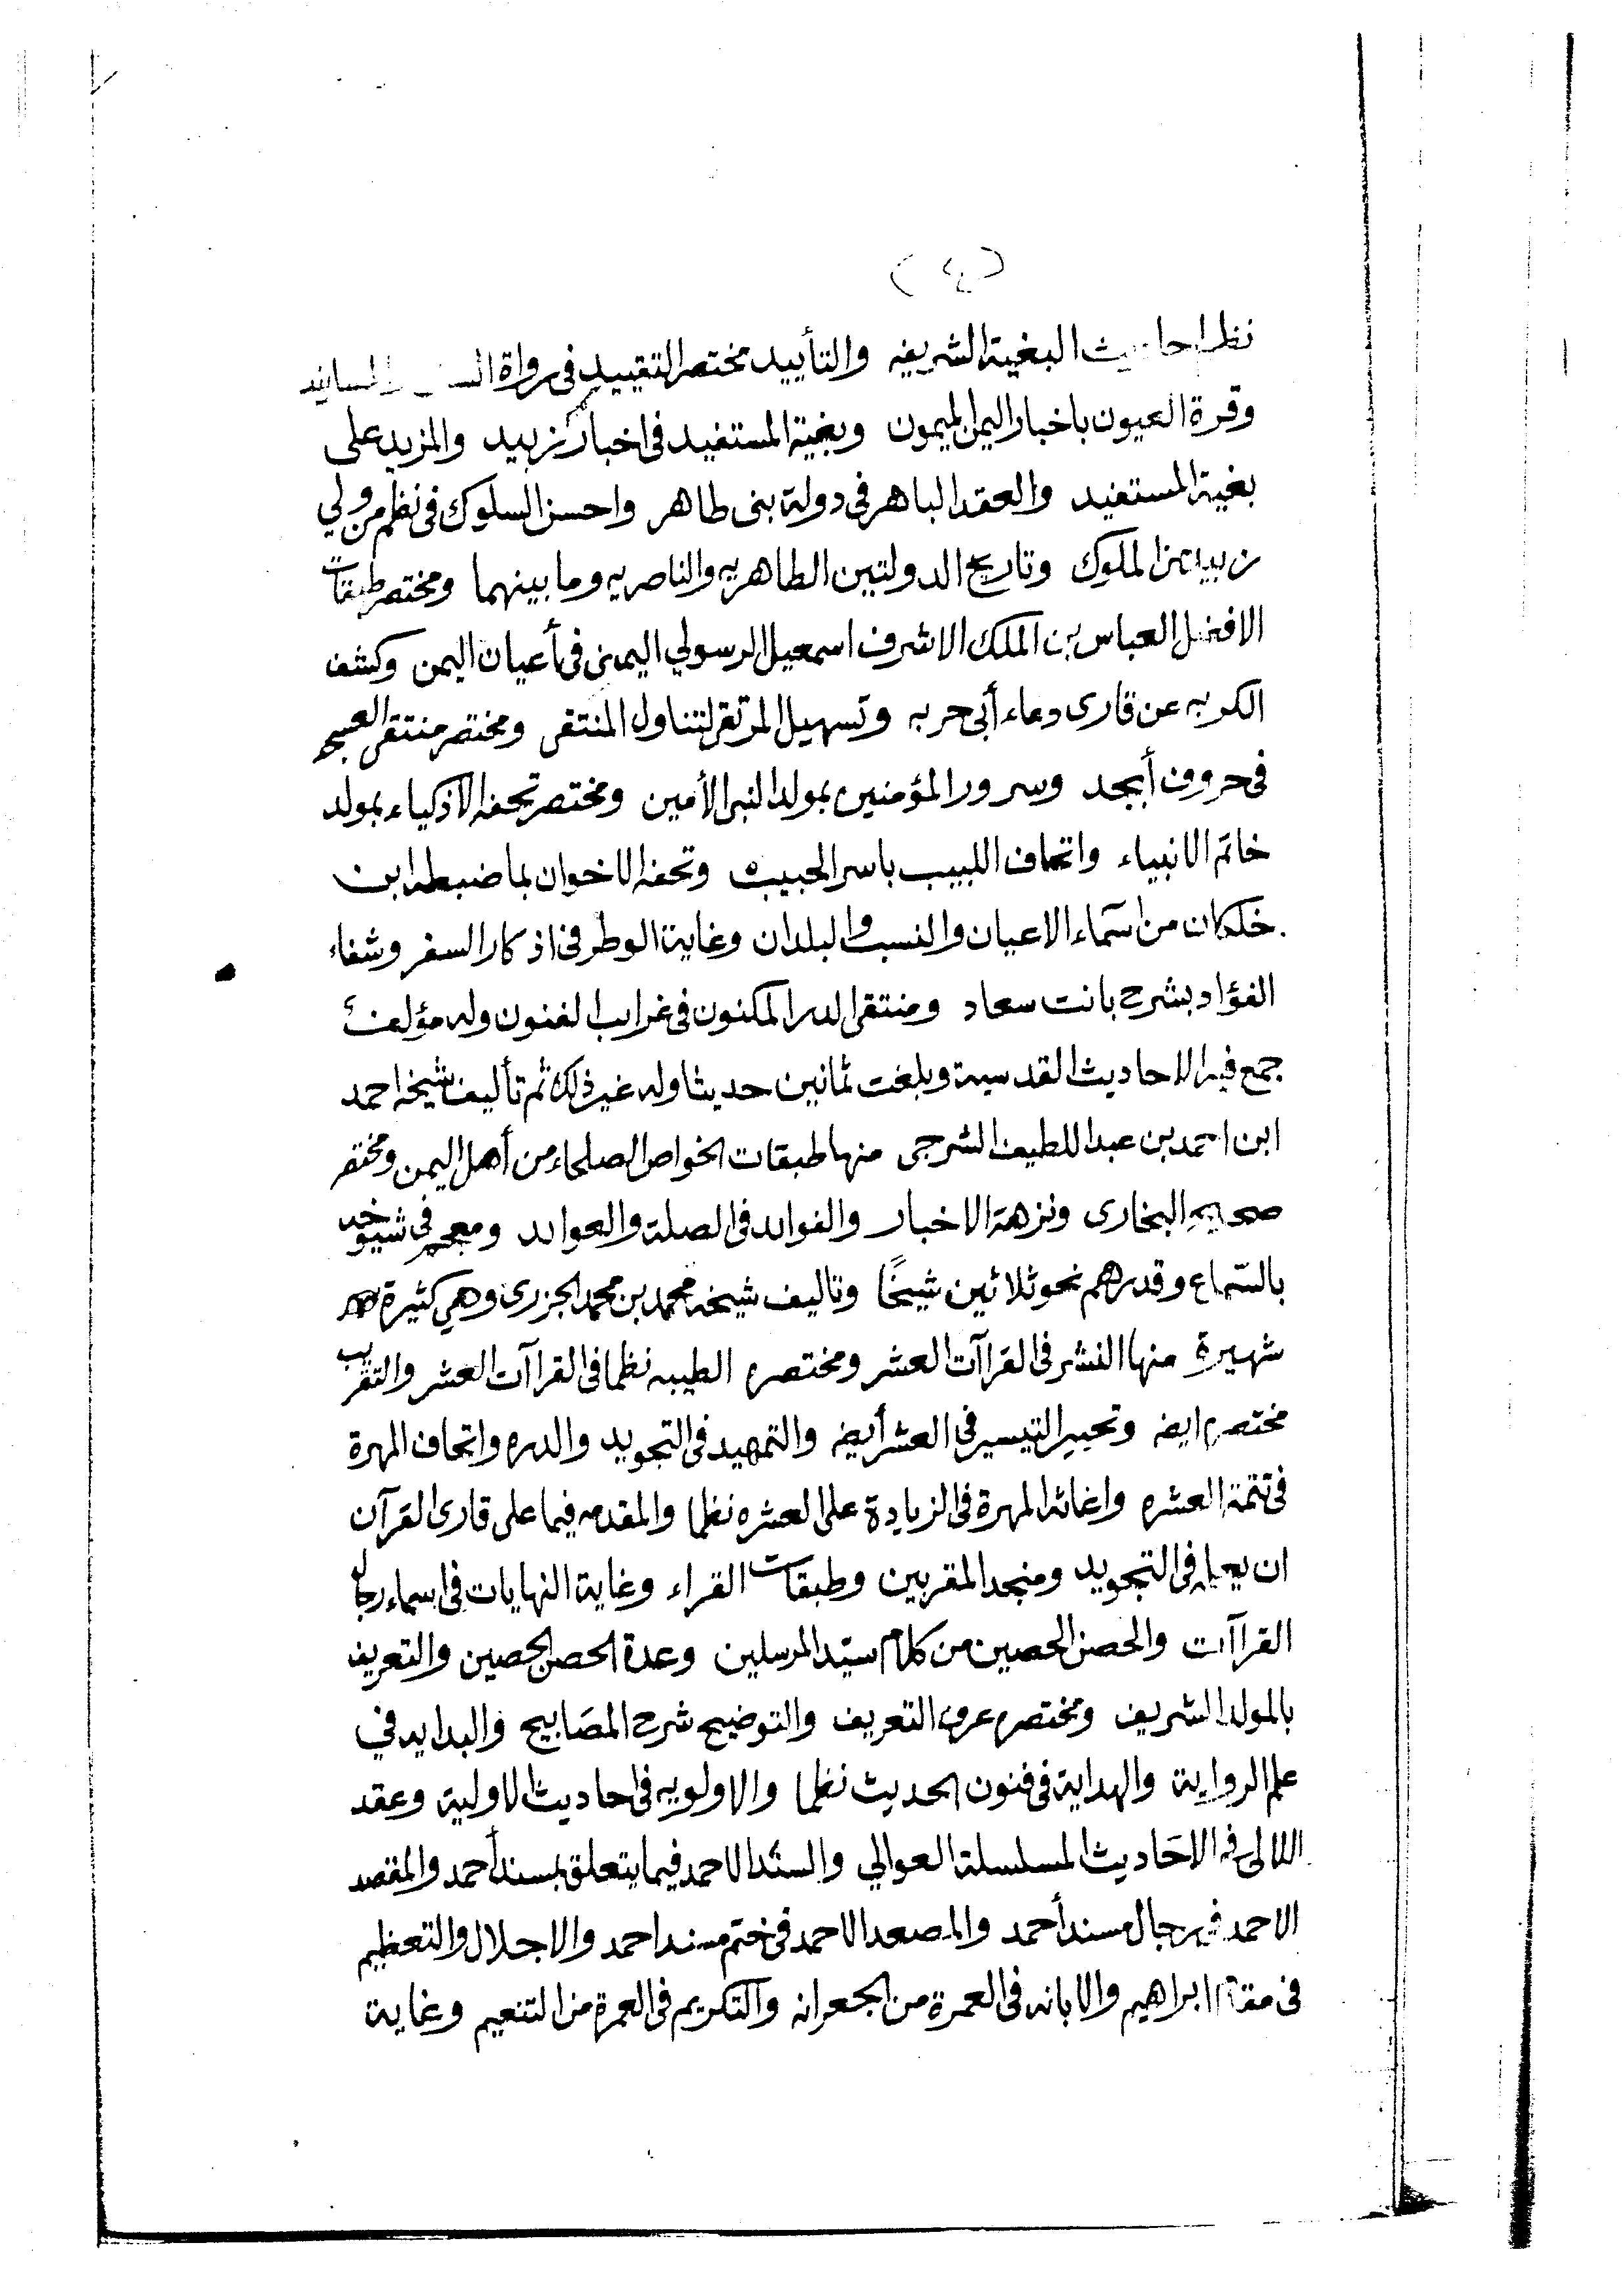 (٤)
نظم احاديث البغية الشريفه والتأييد مختصر التقييد فى رواة السنن والمسانيد
وقرة العيون باخبار اليمن الميمون وبغية المستفيد فى اخبار زبيد والمزيد على
بغية المستفيد والعقد الباهر فى دولة بنى طاهر واحسن السلوك فى نظم من ولي
زبيد من الملوك وتاريخ الدولتين الطاهريه والناصريه وما بينهما ومختصر طبقات
الافضل العباس بن الملك الاشرف اسمعيل الرسولي اليمنى فى أعيان اليمن وكشف
الكربه عن قارى دعاء أبى حربه وتسهيل المرتقى لتناول المنتقى ومختصر منتقى
فى حروف أبجد وسرور المؤمنين بمولد النبى الأمين ومختصر تحفه الاذكياء بمولد
خاتم الانبياء واتحاف اللبيب باسر الحبيب وتحفه الاخوان بما ضبطه ابن
خلكان من اسماء الاعيان والنسب والبلدان وغاية الوطر فى اذكار السفر وشفاء
الفؤاد بشرح بانت سعاد ومنتقى الدر المكنون فى غرايب الفنون وله مؤلف
جمع فيه الاحاديث القدسية وبلغت ثمانين حديثا وله غير ذلك ثم تأليف شيخه احمد
ابن احمد بن عبد اللطيف الشرجى منها طبقات الخواص الصلحاء من أهل اليمن ومختصر
صحيح البخارى ونزهة الاخبار والفوايد فى الصلة والعوايد ومعجم فى شيوخه
بالسّماع وقدرهم نحو ثلاثين شيخًا وتاليف شيخه محمد بن محمد الجزرى وهي كثيرة
شهيرة منها النشر فى القراآت العشر ومختصره الطيبه نظما فى القراآت العشر والتقريب
مختصره ايضه وتحبير التيسير فى العشر أيضه والتمهيد فى التجويد والدره واتحاف المهرة
فى تتمة العشره واغاثة المهرة فى الزيادة على العشره نظما والمقدمه فيما على قارى القرآن
ان يعلمه فى التجويد ومنجد المقربين وطبقات القراء وغاية النهايات فى اسماء رجال
القراآت والحصن الحصين من كلام سيّد المرسلين وعدة الحصن الحصين والتعريف
بالمولد الشريف ومختصره عرف التعريف والتوضيح شرح المصَابيح والبدايه في
علم الرواية والهداية فى فنون الحديث نظما والاولويه فى احاديث الاولية وعقد
اللالى فى الاحَاديث المسلسلة العوالي والسنَد الاحمد فيما يتعلق بمسند أحمد والمقصد
الاحمد فى رجال مسند أحمد والمصعد الاحمد فى ختم مسند احمد والاجلال والتعظيم
فى مقام ابراهيم والابانه فى العمرة من الجعرانه والتكريم فى العمرة من التنعيم وغاية